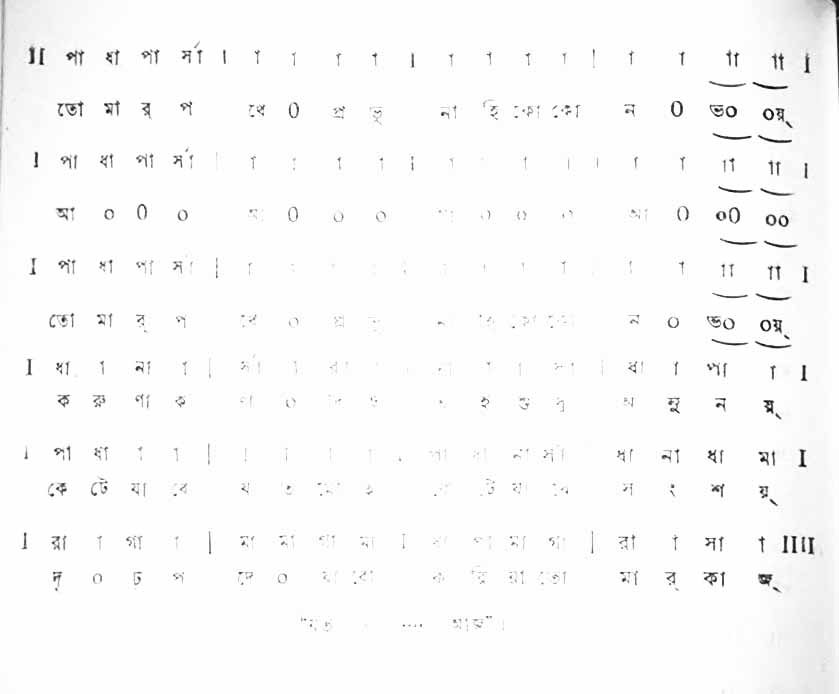 II পা ধা পা র্সা । া া া া । া া া া । া া াা াা I
তো মা র্ প থে ০ প্র ভু না হি কো কো ন ০ ভ০ ০য়্
I পা ধা পা র্সা । া া া া । া া া া । া া াা াা I
আ ০ ০ ০ আ ০ ০ ০ আ ০ ০ ০ আ ০ ০০ ০০
I পা ধা পা র্সা । া া া া । া া া া । া া াা াা I
তো মা র্ প থে ০ প্র ভু না হি কো কো ন ০ ভ০ ০য়্
I ধা া না া । র্সা া । ধা া পা া I
ক রু ণা ক ণা ০ হ শু দ্ধ ম ন য়্
I পা ধা া া । া া া া । পা ধা না র্সা । ধা না ধা মা I
কে টে যা বে য ত মো হ কে টে যা বে স ং শ য়্
I রা া গা া । মা মা গা মা I ধা পা মা গা । রা া সা া IIII
দৃ ০ ঢ় প দে ০ যা বো ক রি য়া তো মা র্ কা জ্
.... আজ"।